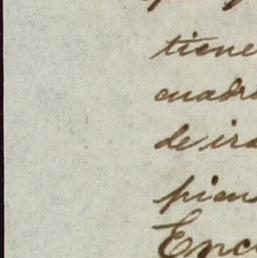 tiene
cuadr
de ira
pien
Enc